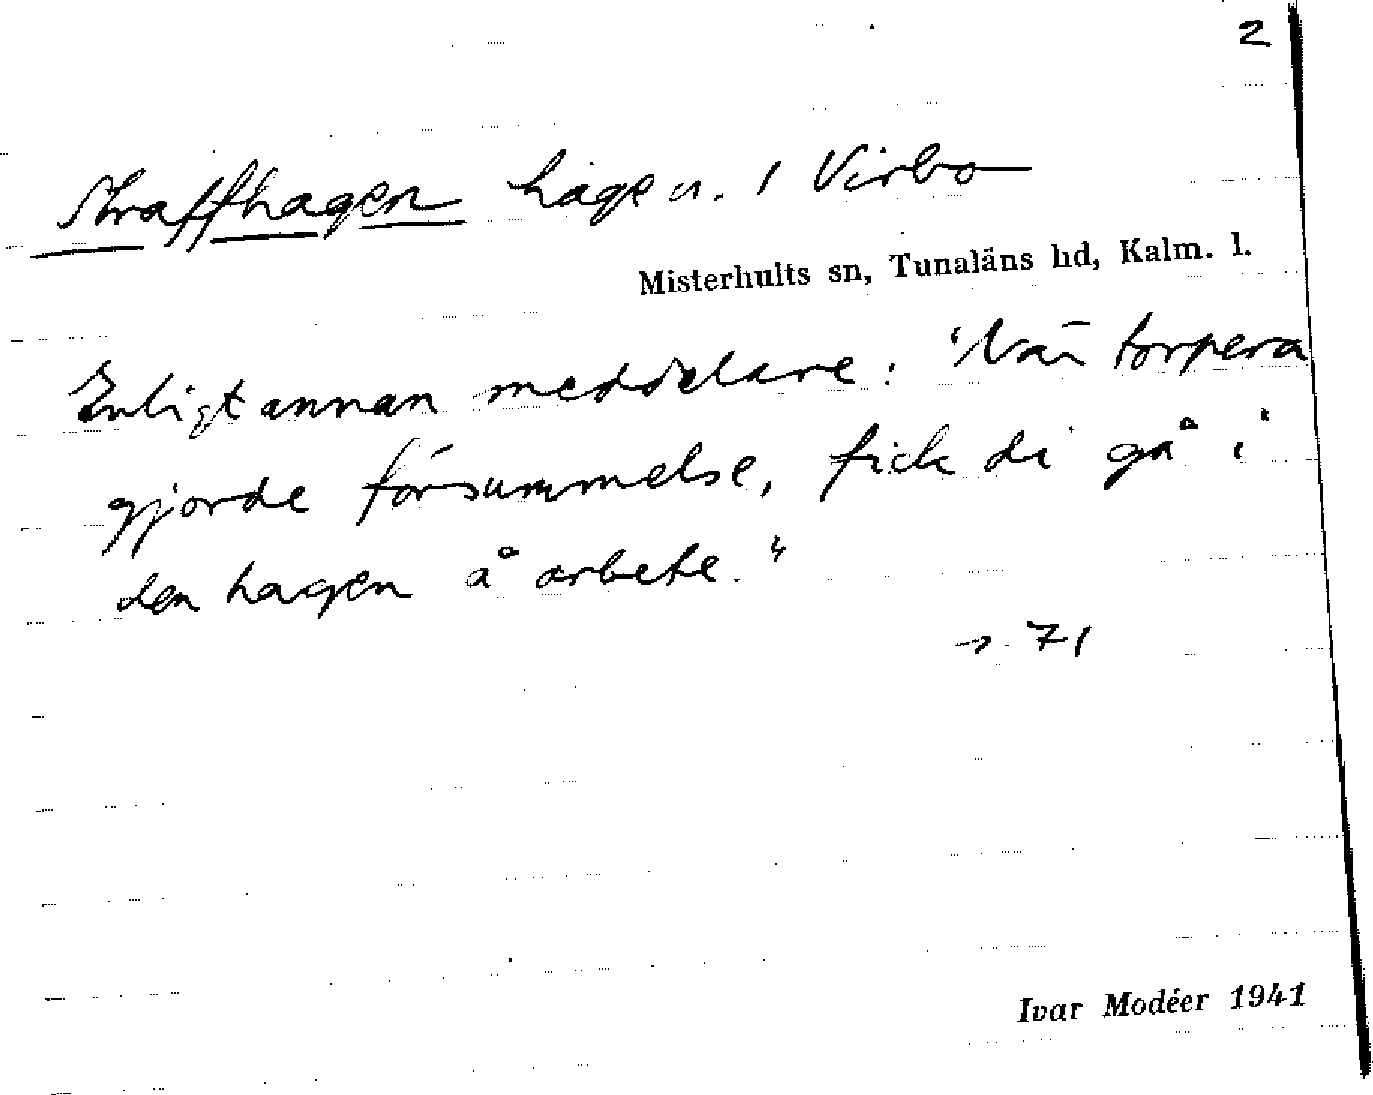 2
Straffhagen hage n. i Virbo
Misterhults sn, Tunaläns hd, Kalm. l.
Enligt annan meddelare: "När torpera
gjorde försummelse, fick di gå i
den hagen å arbete."
→ 71
Ivar Modéer 1941